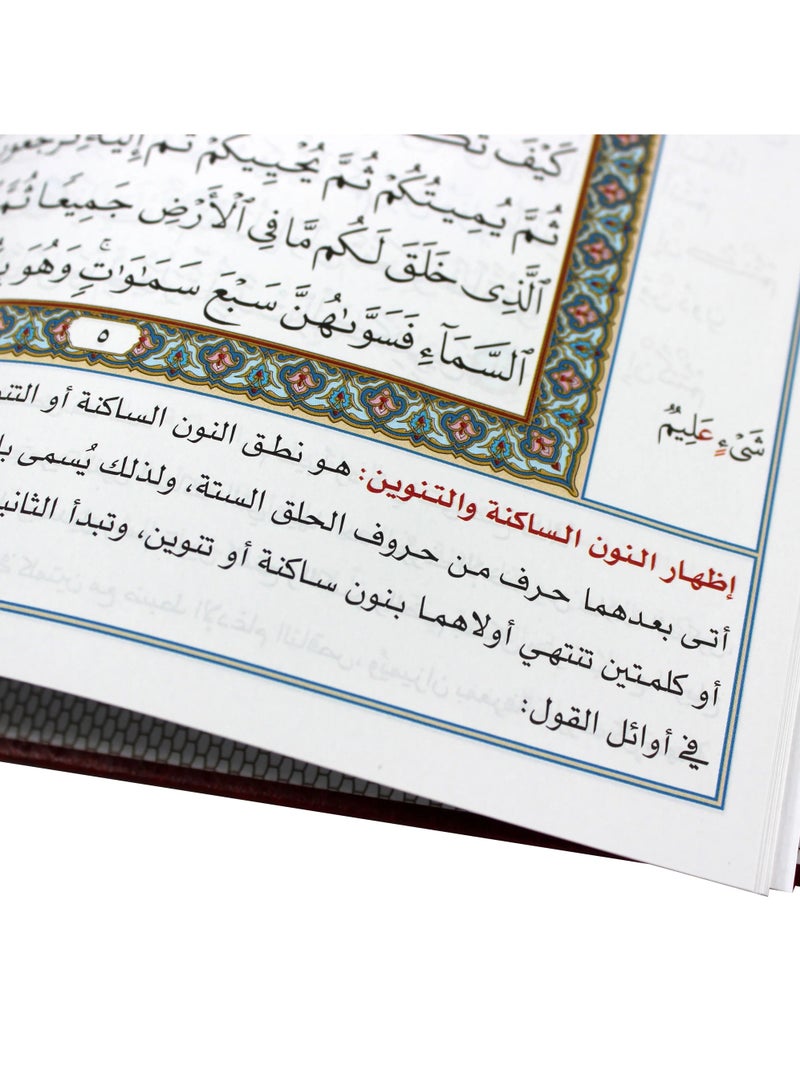 كَيْفَ
ثُمَّ يُمِيتُكُمْ ثُمَّ يُحْيِيكُمْ ثُمَّ إِلَيْهِ
ٱلَّذِى خَلَقَ لَكُم مَّا فِى ٱلْأَرْضِ جَمِيعًا ثُمَّ
ٱلسَّمَآءِ فَسَوَّىٰهُنَّ سَبْعَ سَمَٰوَٰتٍۚ وَهُوَ
٥
شَىْءٍ عَلِيمٌ
إظهار النون الساكنة والتنوين: هو نطق النون الساكنة أو
أتى بعدهما حرف من حروف الحلق الستة، ولذلك يُسمى
أو كلمتين تنتهي أولاهما بنون ساكنة أو تنوين، وتبدأ
في أوائل القول: